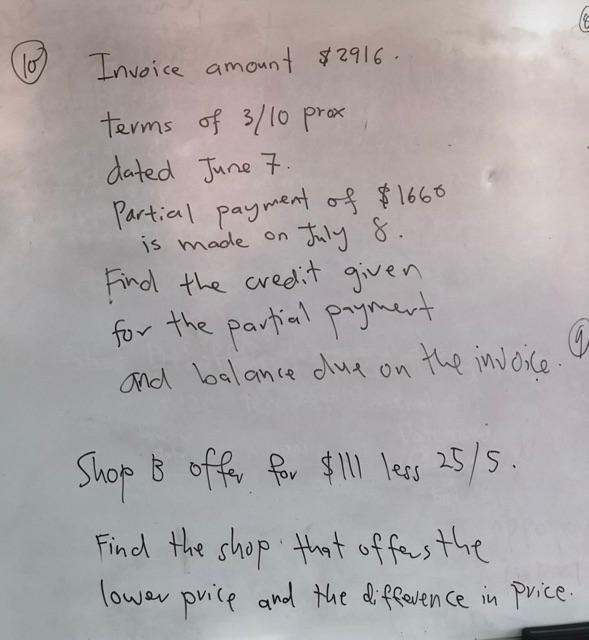 10 Invoice amount $2916.
terms of 3/10 prox
dated June 7.
Partial payment of $1666
is made on July 8.
Find the credit given
for the partial payment
and balance due on the invoice. 9
Shop B offer for $111 less 25/5.
Find the shop that offers the
lower price and the difference in price.